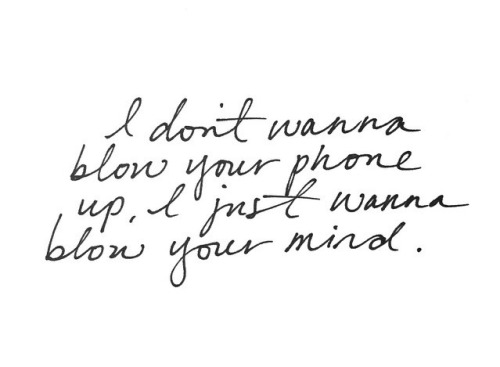 I don't wanna
blow your phone
up, I just wanna
blow your mind.